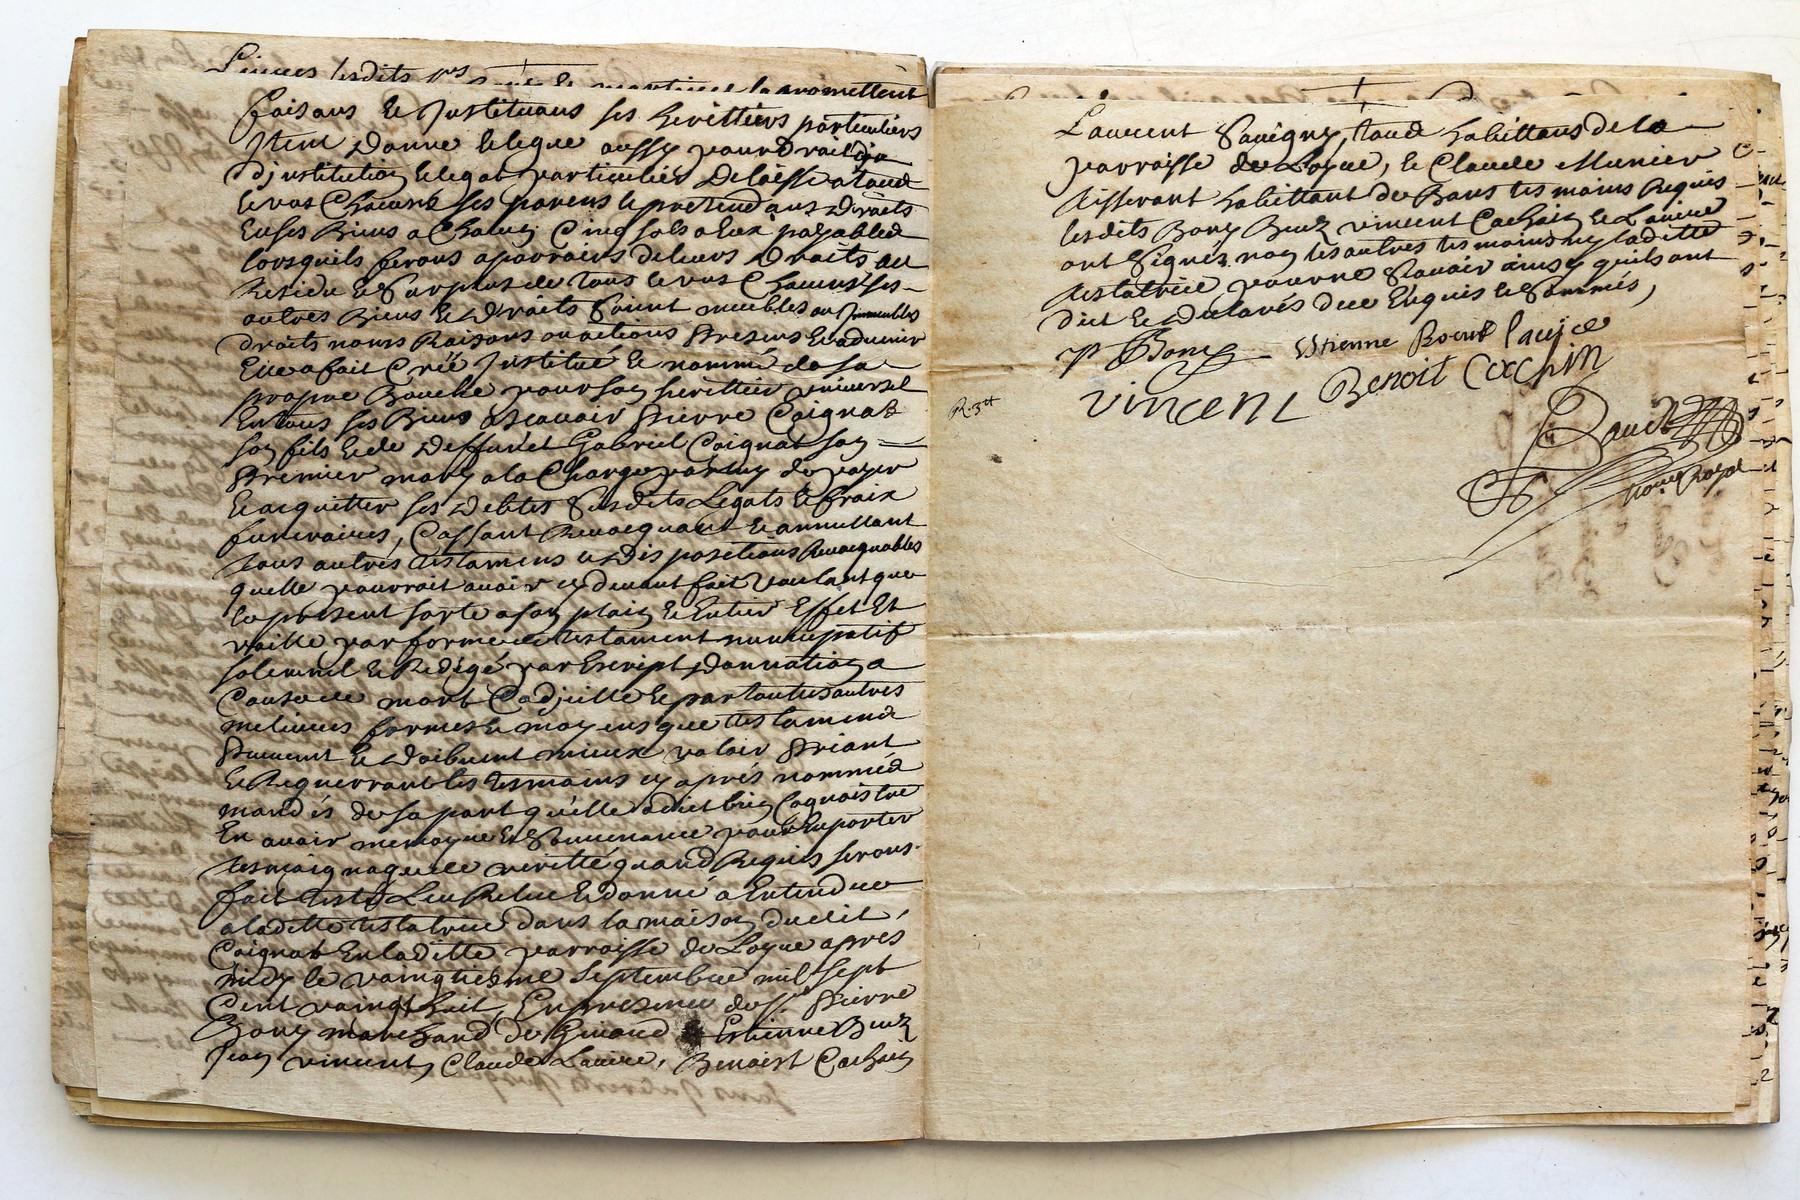 Lesdits
la promettent
faisans et Jnstituans ses heritiers particuliers
Jtem donne et legue aussy pour droit
djnstitution et legat particulier delaisse a tous
et vns Chacuns ses parens et pretendans droits
En ses Biens a Chacun Cinq sols a Eux payables
lorsquils feront aparroir de leurs Droits au
Residu et Surplus de tous et vns Chacuns ses
autres Biens et Droits soient meubles ou Jmmeubles
droits noms Raisons ou actions Presens et aduenir
Elle a fait Créé Jnstitué et nommé de sa
propre Bouche pour son heritier vniversel
En tous ses Biens Scauoir Pierre Coignat
son fils et de deffunct Gabriel Coignat son
Premier mary a la Charge par luy de payer
et acquitter ses debtes Susdits Legats et fraix
funeraires, Cassant Reuocquant et annullant
tous autres testamens et dispositions Reuocquables
quelle pourroit auoir cy deuant fait Voulant que
le present sorte a son plain et Entier Effet Et
vaille par forme de testament nuncupatif
solemnel et Redigé par Escript, donnation a
Cause de mort Codjcille et par toutes autres
melieures formes et moyens que testamens
Peuuent et doibuent mieux valoir Priant
et Requerrant les tesmoins cy aprés nommés
mandés de sa part qu'elle a dict bien Cognoistre
En auoir memoyre Et Souuenance pour En porter
tesmoignage de verité quand Requis seront
fait Leu Releu et donné a Entendre
a laditte testatrice dans la maison dudit
Coignat En laditte parroisse de Loyue apres
midy le vaingtiesme Septembre mil Sept
Cent vaingt huit, En presence de Sr Pierre
Bony marchand de Estienne Buez
Jean vincent, Claude Lauice, Benoist Cochain
Laurent Sauigny, tous habittans de la
parroisse de Loyue, et Claude Munier
tisserant habittant de Bans tesmoins Requis
lesdits Bony Buez vincent Cochain et Lauice
ont Signés non les autres tesmoins ny laditte
testatrice pour ne Scauoir ainsy quils ont
dict et declarés de ce Enquis et Sommés,
p Bony Estienne Boeuf lauice
vincent Benoit Cochin
R. 3tt
Royal